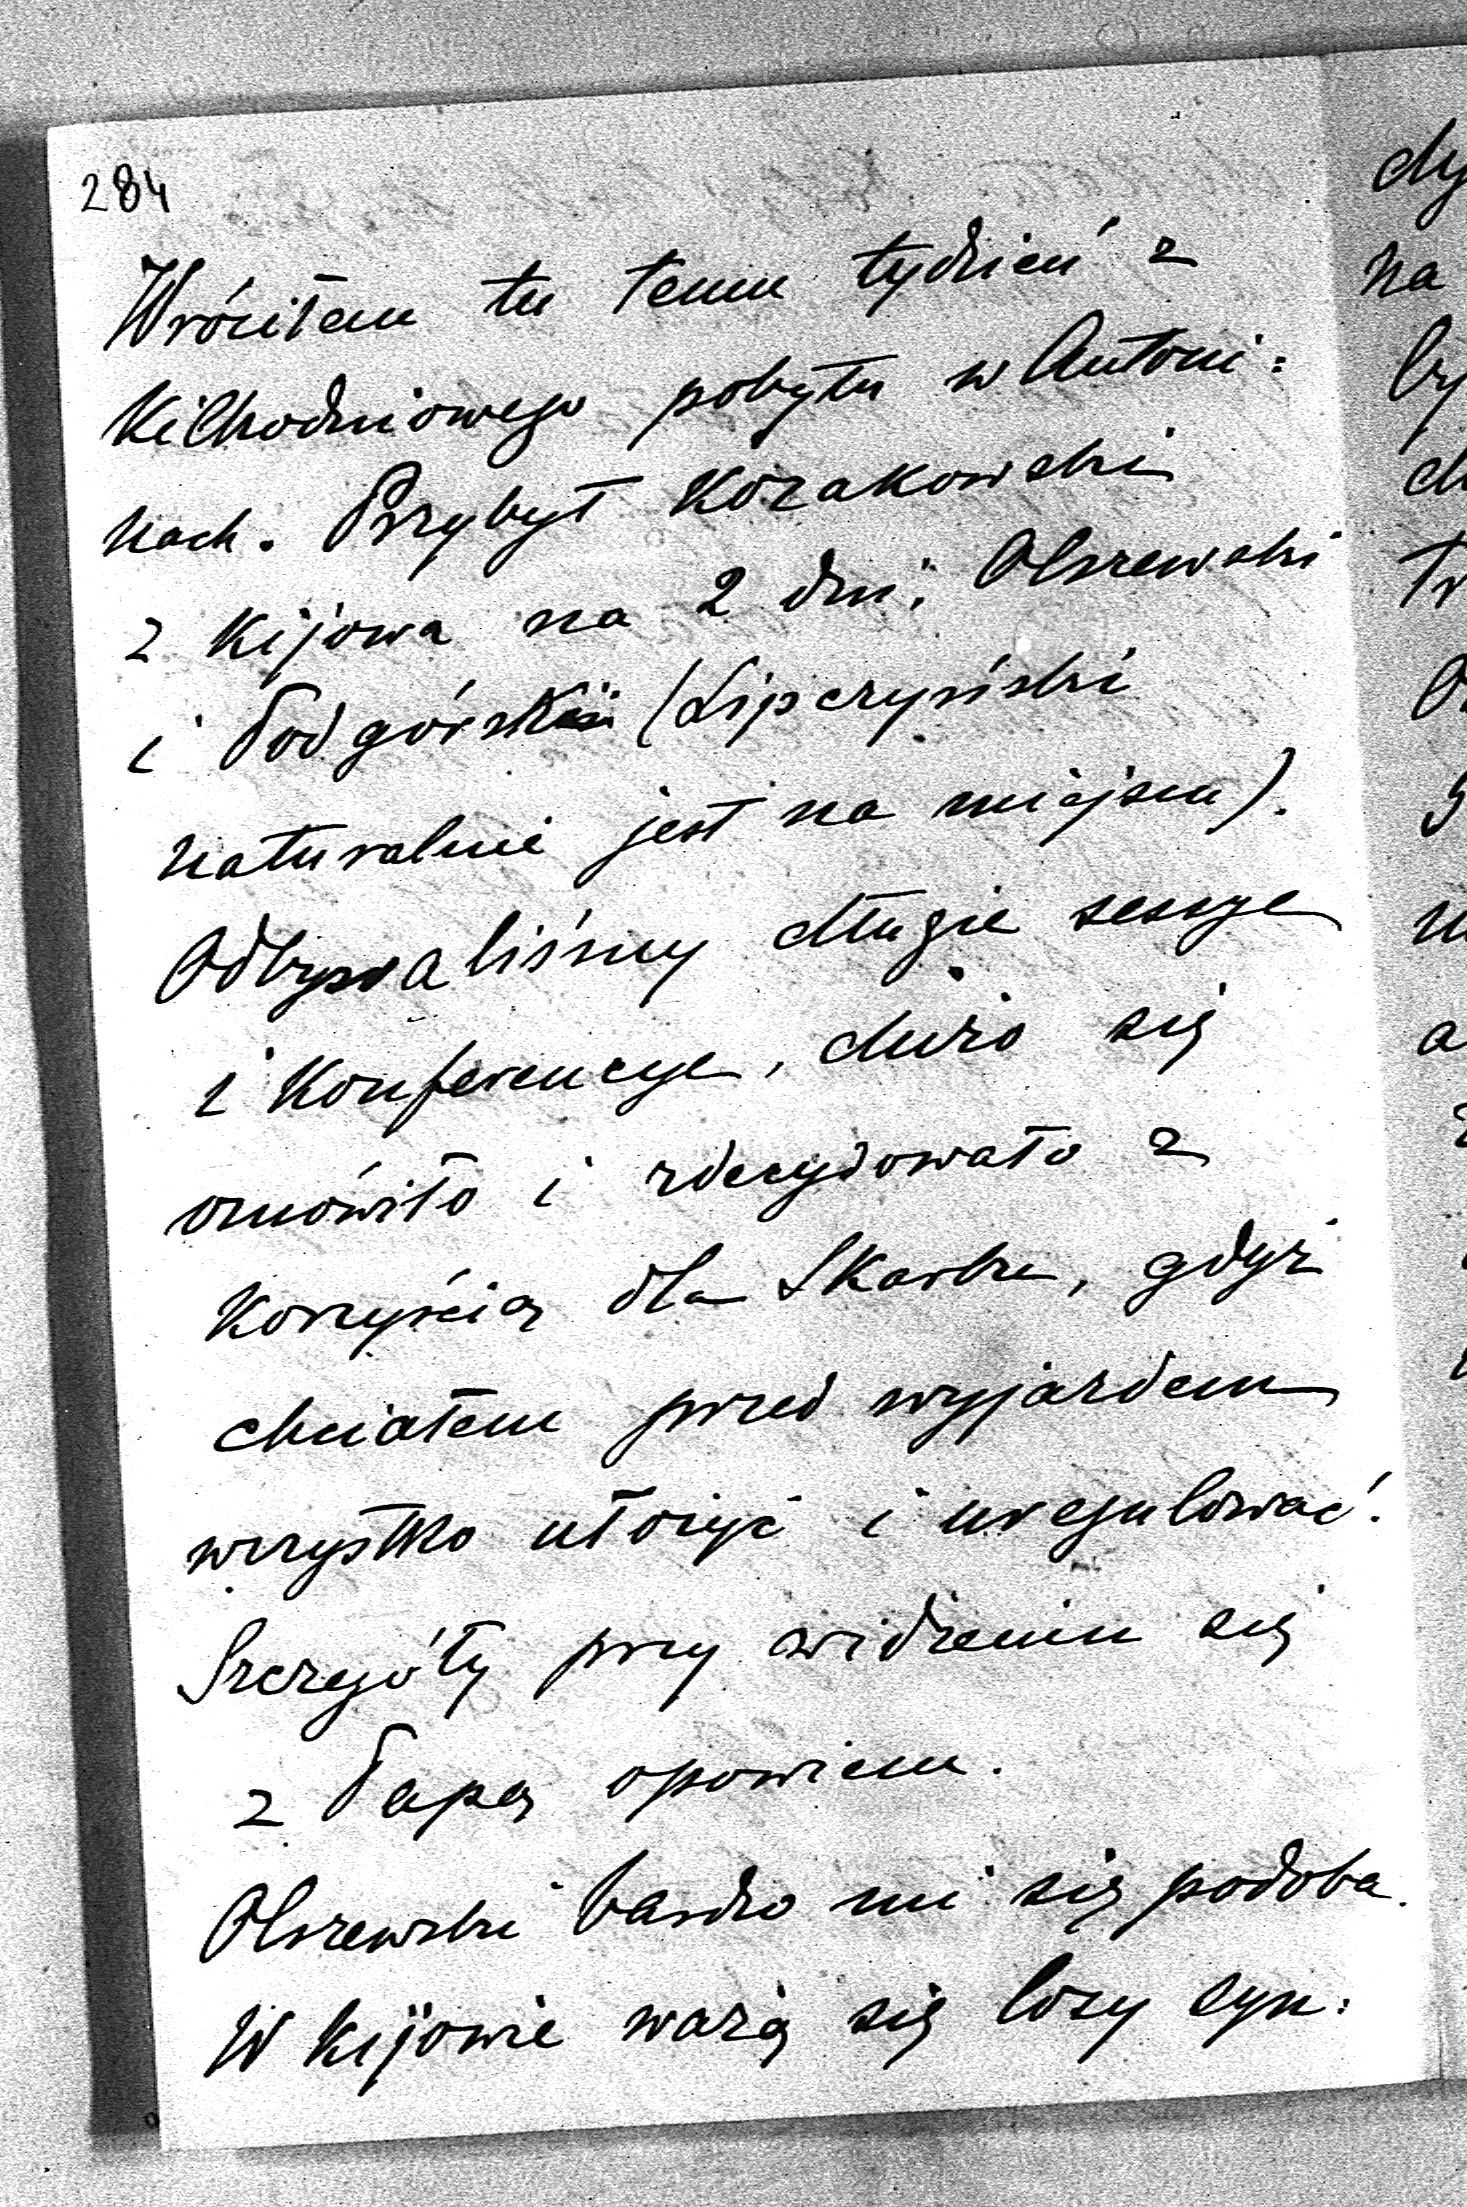 284
Wróciłem tu temu tydzień z
kilkodniowego pobytu w Antoni:
nach. Przybył Kozakowski
z Kijowa na 2 dni, Olszewski
i Podgórski (Lipczyński
naturalnie jest na miejscu).
Odbywaliśmy długie sesye
i Konferencye, dużo się
omówiło i zdecydowało z
Korzyścią dla Skarbu, gdyż
chciałem przed wyjazdem
wszystko ułożyć i uregulować.
Szczegóły przy widzeniu się
z Papą opowiem.
Olszewski bardzo mi się podoba.
W Kijowie ważą się losy syn: